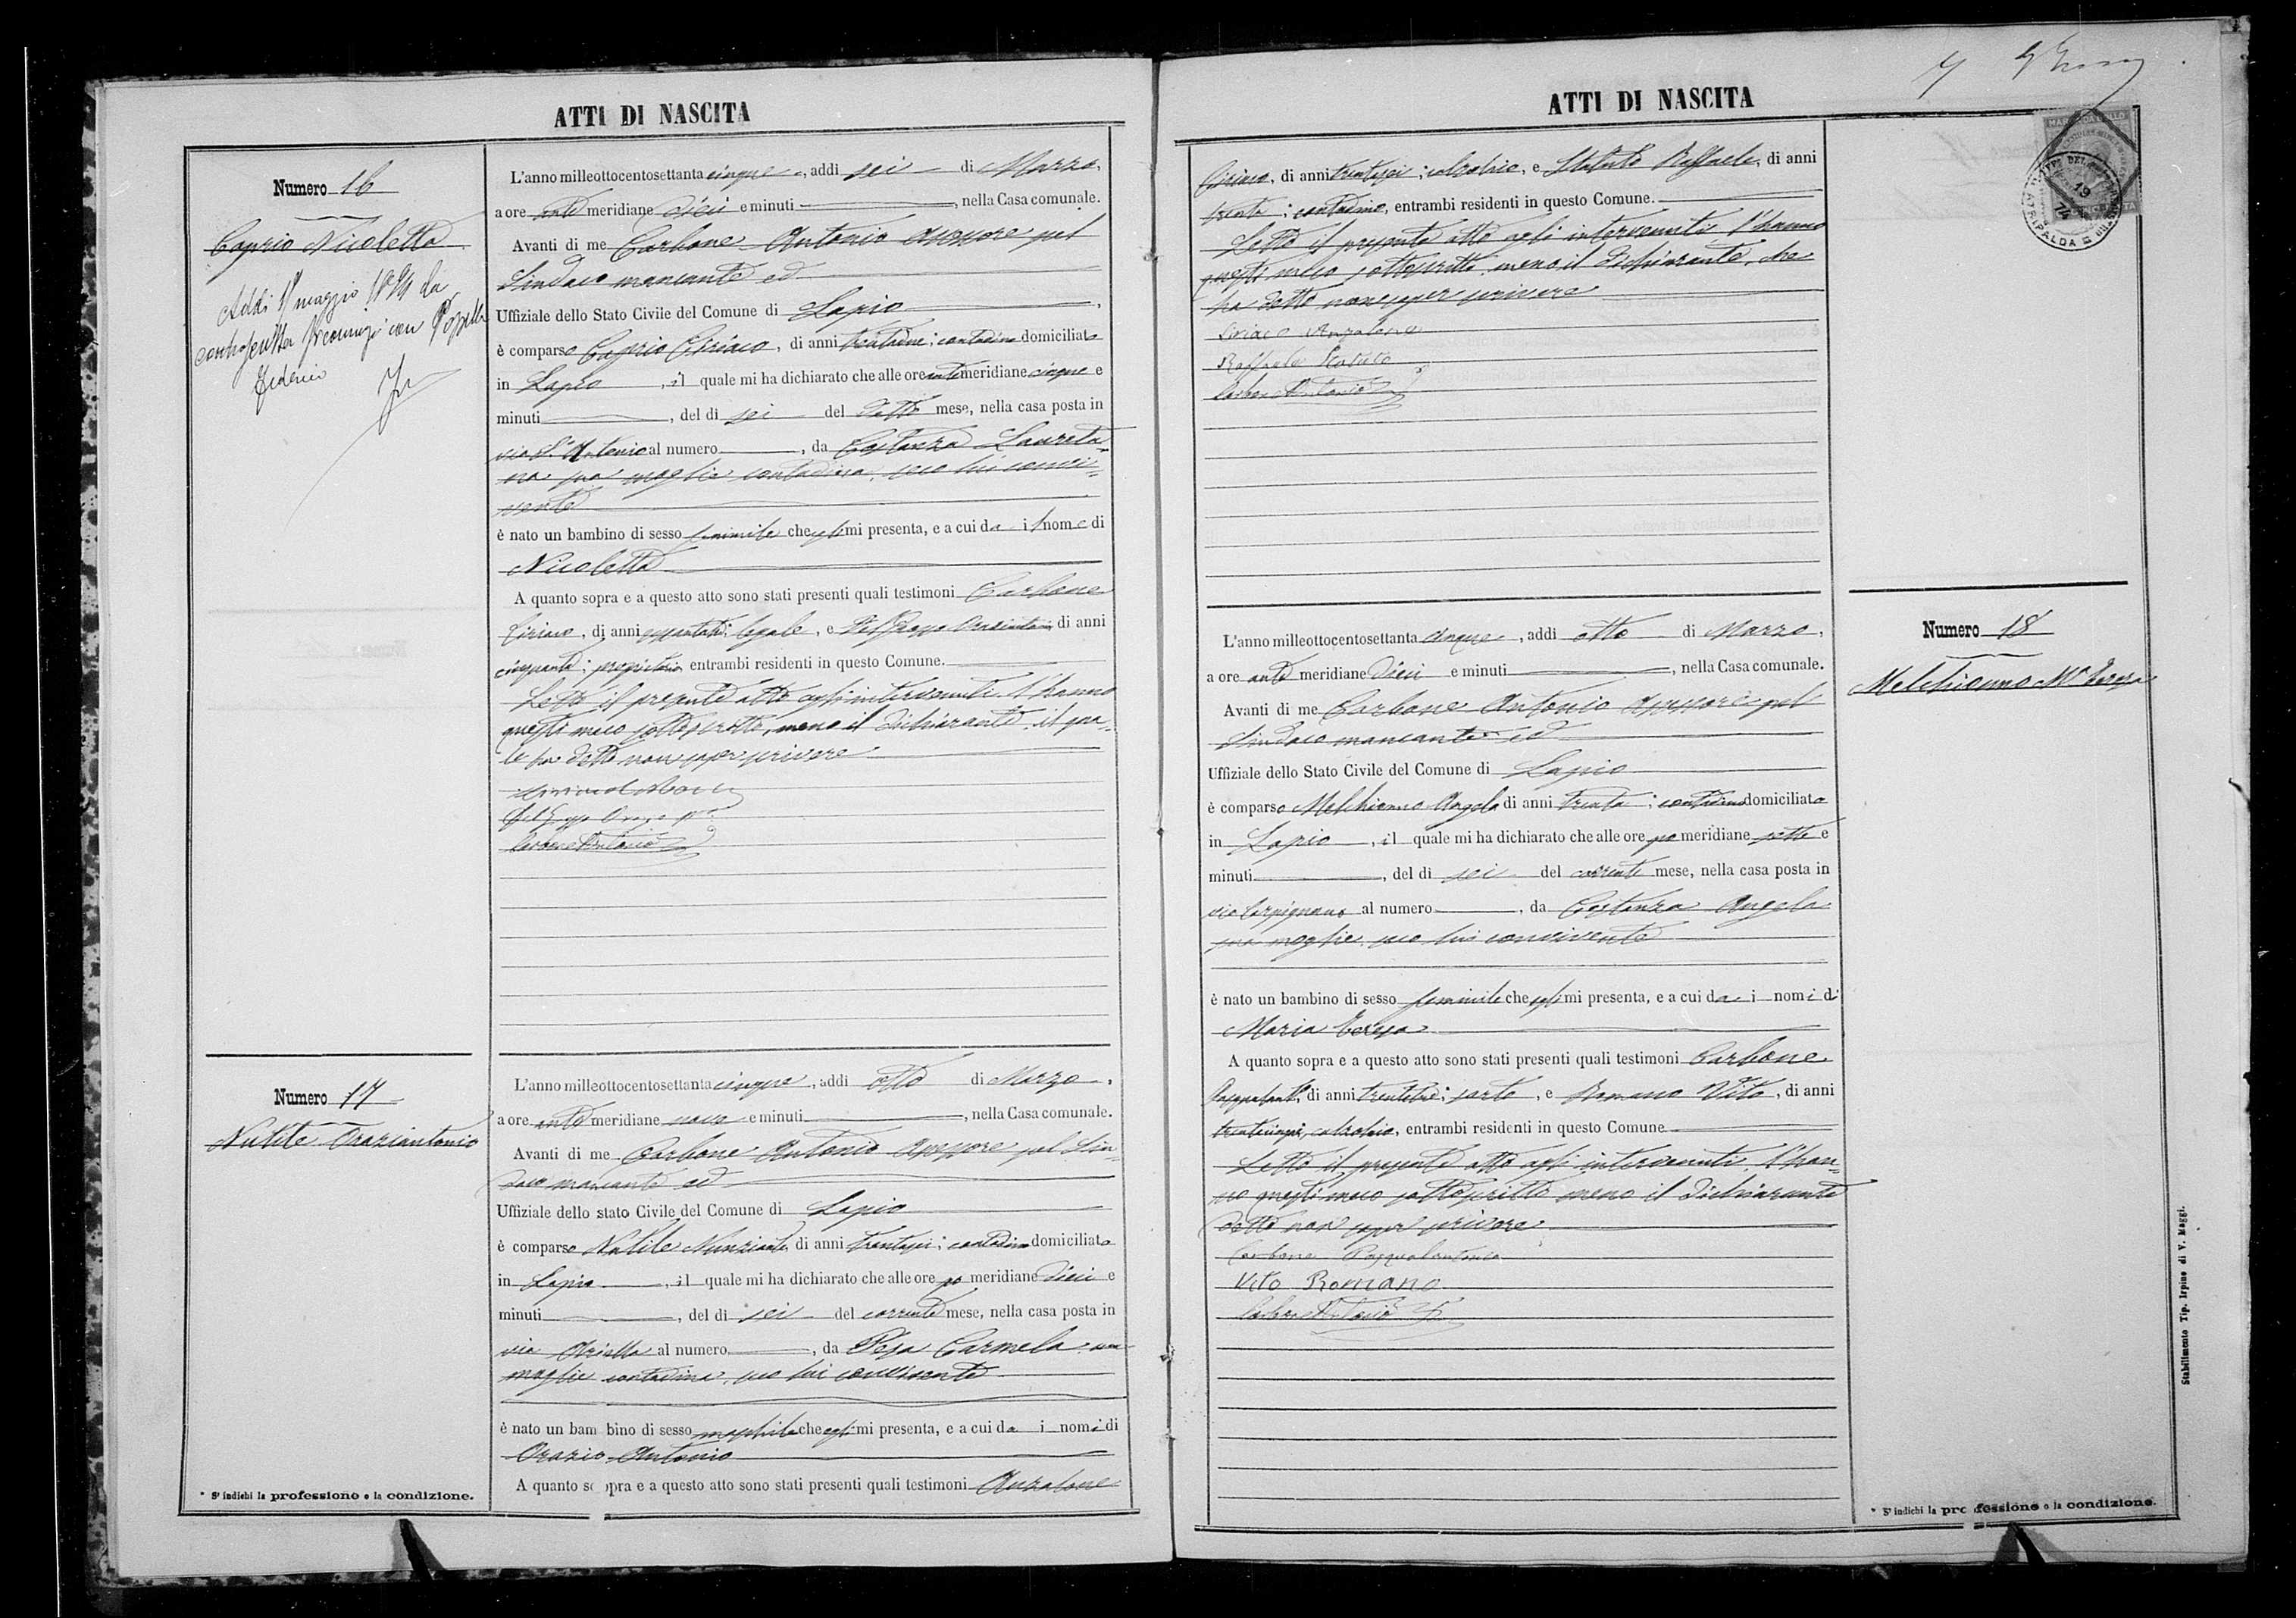 ATTI DI NASCITA
Numero 16
Caprio Nicoletta
Addì 11 maggio 1894 la
controscritta
Federico
L'anno milleottocentosettanta cinque, addì sei di Marzo,
a ore ante meridiane dieci e minuti, nella Casa comunale.
Avanti di me Carbone Antonio Assessore pel
Sindaco mancante ed
Uffiziale dello Stato Civile del Comune di Lapio
è comparso Caprio Ciriaco, di anni contadino domiciliato
in Lapio, il quale mi ha dichiarato che alle ore ante meridiane cinque e
minuti, del dì sei del detto mese, nella casa posta in
via S. Antonio al numero, da Costanza Laureta
na sua moglie contadina, seco lui convi=
vente
è nato un bambino di sesso femminile che egli mi presenta, e a cui da il nome di
Nicoletta
A quanto sopra e a questo atto sono stati presenti quali testimoni Carbone
Ciriaco, di anni legale, e di anni
cinquanta; proprietario entrambi residenti in questo Comune.
Letto il presente atto agli intervenuti l'hanno
questi meco sottoscritto, meno il dichiarante, il qua=
le ha detto non saper scrivere
Carbone Antonio
Numero 17
Natile Orazioantonio
L'anno milleottocentosettanta cinque, addì otto di Marzo,
a ore ante meridiane nove e minuti, nella Casa comunale.
Avanti di me Carbone Antonio Assessore pel Sin=
daco mancante ed
Uffiziale dello stato Civile del Comune di Lapio
è comparso Natile Nunziante, di anni trentasei; contadino domiciliato
in Lapio, il quale mi ha dichiarato che alle ore po meridiane dieci e
minuti, del dì sei del corrente mese, nella casa posta in
via Ariella al numero, da Pesa Carmela sua
moglie contadina, seco lui convivente
è nato un bambino di sesso maschile che egli mi presenta, e a cui da i nomi di
Orazio Antonio
A quanto sopra e a questo atto sono stati presenti quali testimoni Anzalone
* S'indichi la professione o la condizione.
ATTI DI NASCITA
Ciriaco, di anni trentasei; calzolaio, e Statuto Raffaele, di anni
trenta; contadino, entrambi residenti in questo Comune.
Letto il presente atto agli intervenuti l'hanno
questi meco sottoscritto, meno il dichiarante, che
ha detto non saper scrivere
Ciriaco Anzalone
Raffaele Statuto
Carbone Antonio
L'anno milleottocentosettanta cinque, addì otto di Marzo,
a ore ante meridiane dieci e minuti, nella Casa comunale.
Avanti di me Carbone Antonio Assessore pel
Sindaco mancante ed
Uffiziale dello Stato Civile del Comune di Lapio
è comparso Melchionno Angelo di anni trenta; contadino domiciliato
in Lapio, il quale mi ha dichiarato che alle ore po meridiane sette e
minuti, del dì sei del corrente mese, nella casa posta in
via Carpignano al numero, da Costanza Angela
sua moglie seco lui convivente
è nato un bambino di sesso femminile che egli mi presenta, e a cui da i nomi di
Maria Teresa
A quanto sopra e a questo atto sono stati presenti quali testimoni Carbone
Pasqualant°, di anni trentatrè; sarto, e Romano Vito, di anni
trentacinque, calzolaio, entrambi residenti in questo Comune
Letto il presente atto agli intervenuti, l'han=
no questi meco sottoscritto meno il dichiarante
detto non saper scrivere
Carbone Pasqualantonio
Vito Romano
Carbone Antonio
Numero 18
Melchionno Mª Teresa
* S'indichi la professione o la condizione.
Stabilimento Tip. Irpino di V. Maggi.